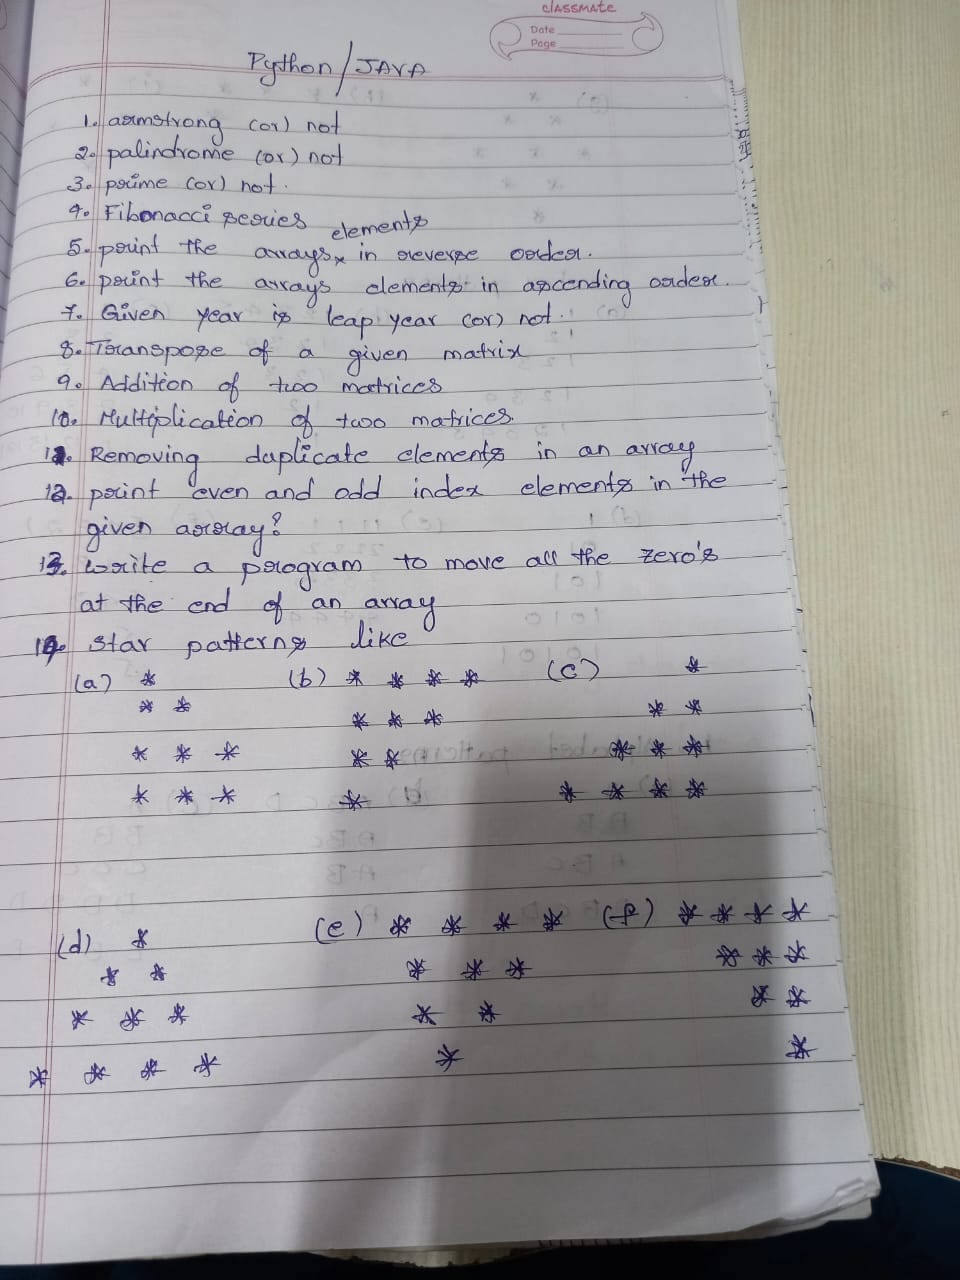 classmate
Date
Page
Python/JAVA
1. armstrong (or) not
2. palindrome (or) not
3. prime (or) not.
4. Fibonacci series
5. print the arrays x elements in reverse order.
6. print the arrays elements in ascending order.
7. Given year is leap year (or) not.
8. Transpose of a given matrix
9. Addition of two matrices
10. Multiplication of two matrices.
11. Removing duplicate elements in an array
12. print even and odd index elements in the
given array?
13. write a program to move all the zero's
at the end of an array
14. star patterns like
(a) * (b) * * * * (c) *
* * * * * * *
* * * * * * * *
* * * * * * * *
(d) * (e) * * * * (f) * * * *
* * * * * * * *
* * * * * * *
* * * * * *